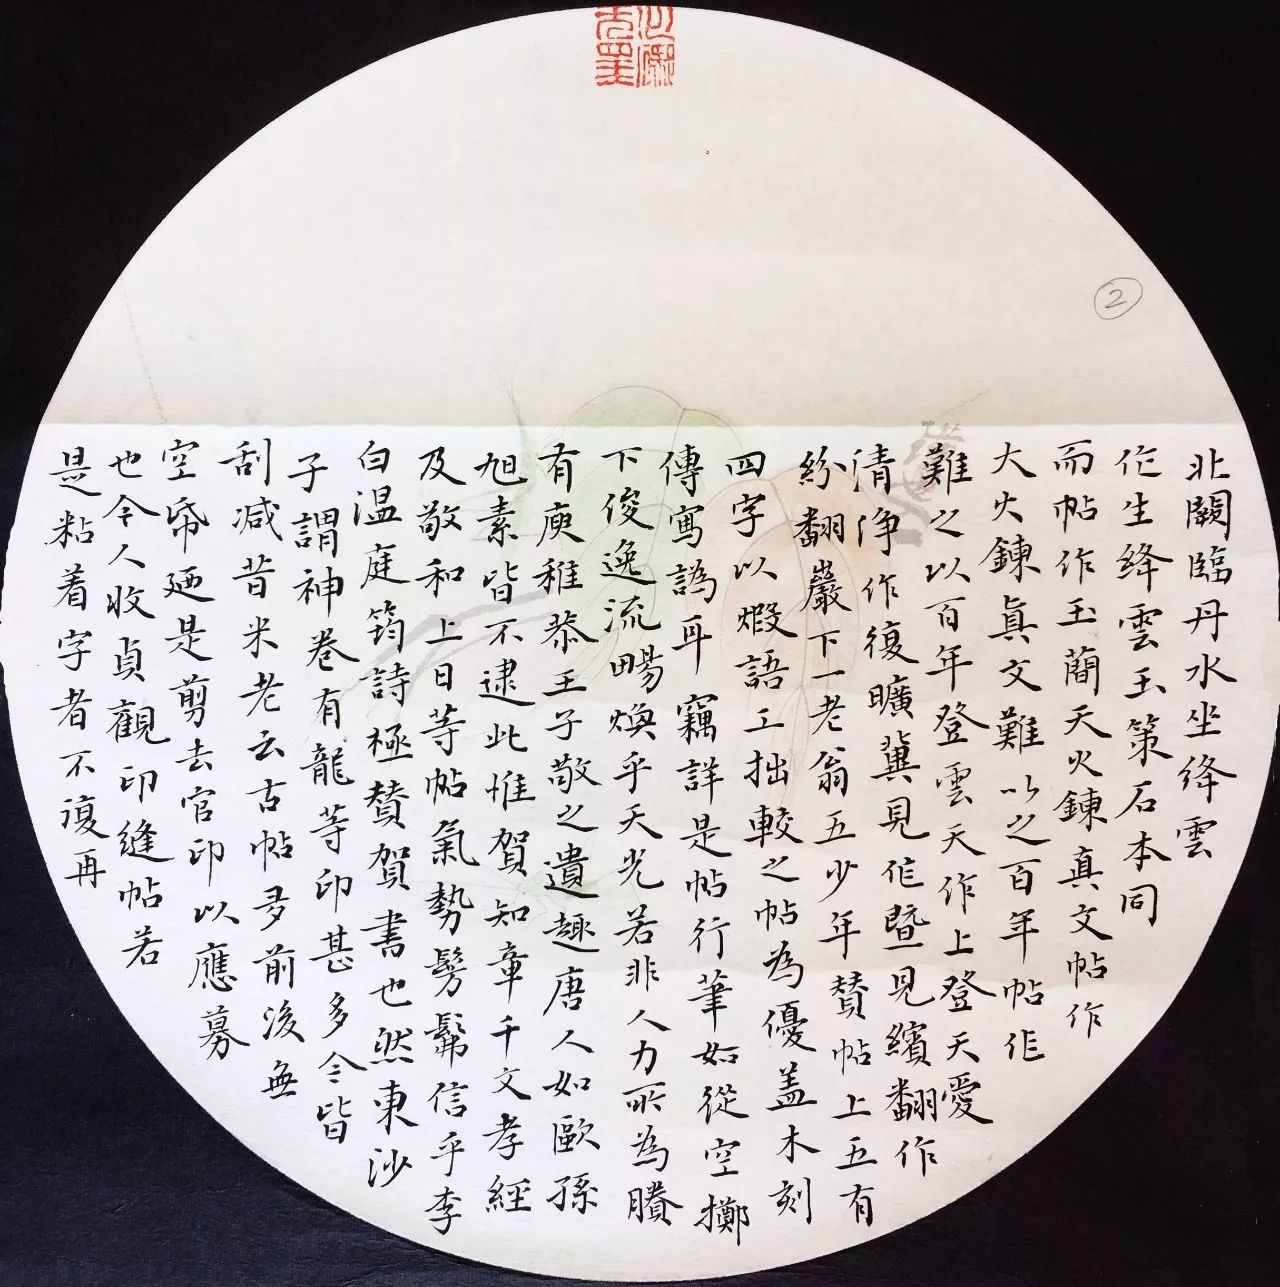 北闕臨丹水坐绛雲
作生绛雲玉策石本同
而帖作玉蕳天火鍊真文帖作
大火鍊真文難以之百年帖作
難之以百年登雲天作上登天愛
清净作復曠冀見作暨見繽翻作
紛翻巖下一老翁五少年賛帖上五有
四字以煆語工拙較之帖為優盖木刻
傳寫譌耳竊詳是帖行筆如從空擲
下俊逸流暢煥乎天光若非人力所為賸
有庾稚恭王子敬之遺趣唐人如歐孫
旭素皆不逮此惟賀知章千文孝經
及敬和上日等帖氣勢髣髴信乎李
白温庭筠詩極賛賀書也然東沙
子謂神卷有龍等印甚多今皆
刮减昔米老云古帖多前後無
空帋廼是剪去官印以應募
也今人收貞觀印縫帖若
是粘着字者不復再
2